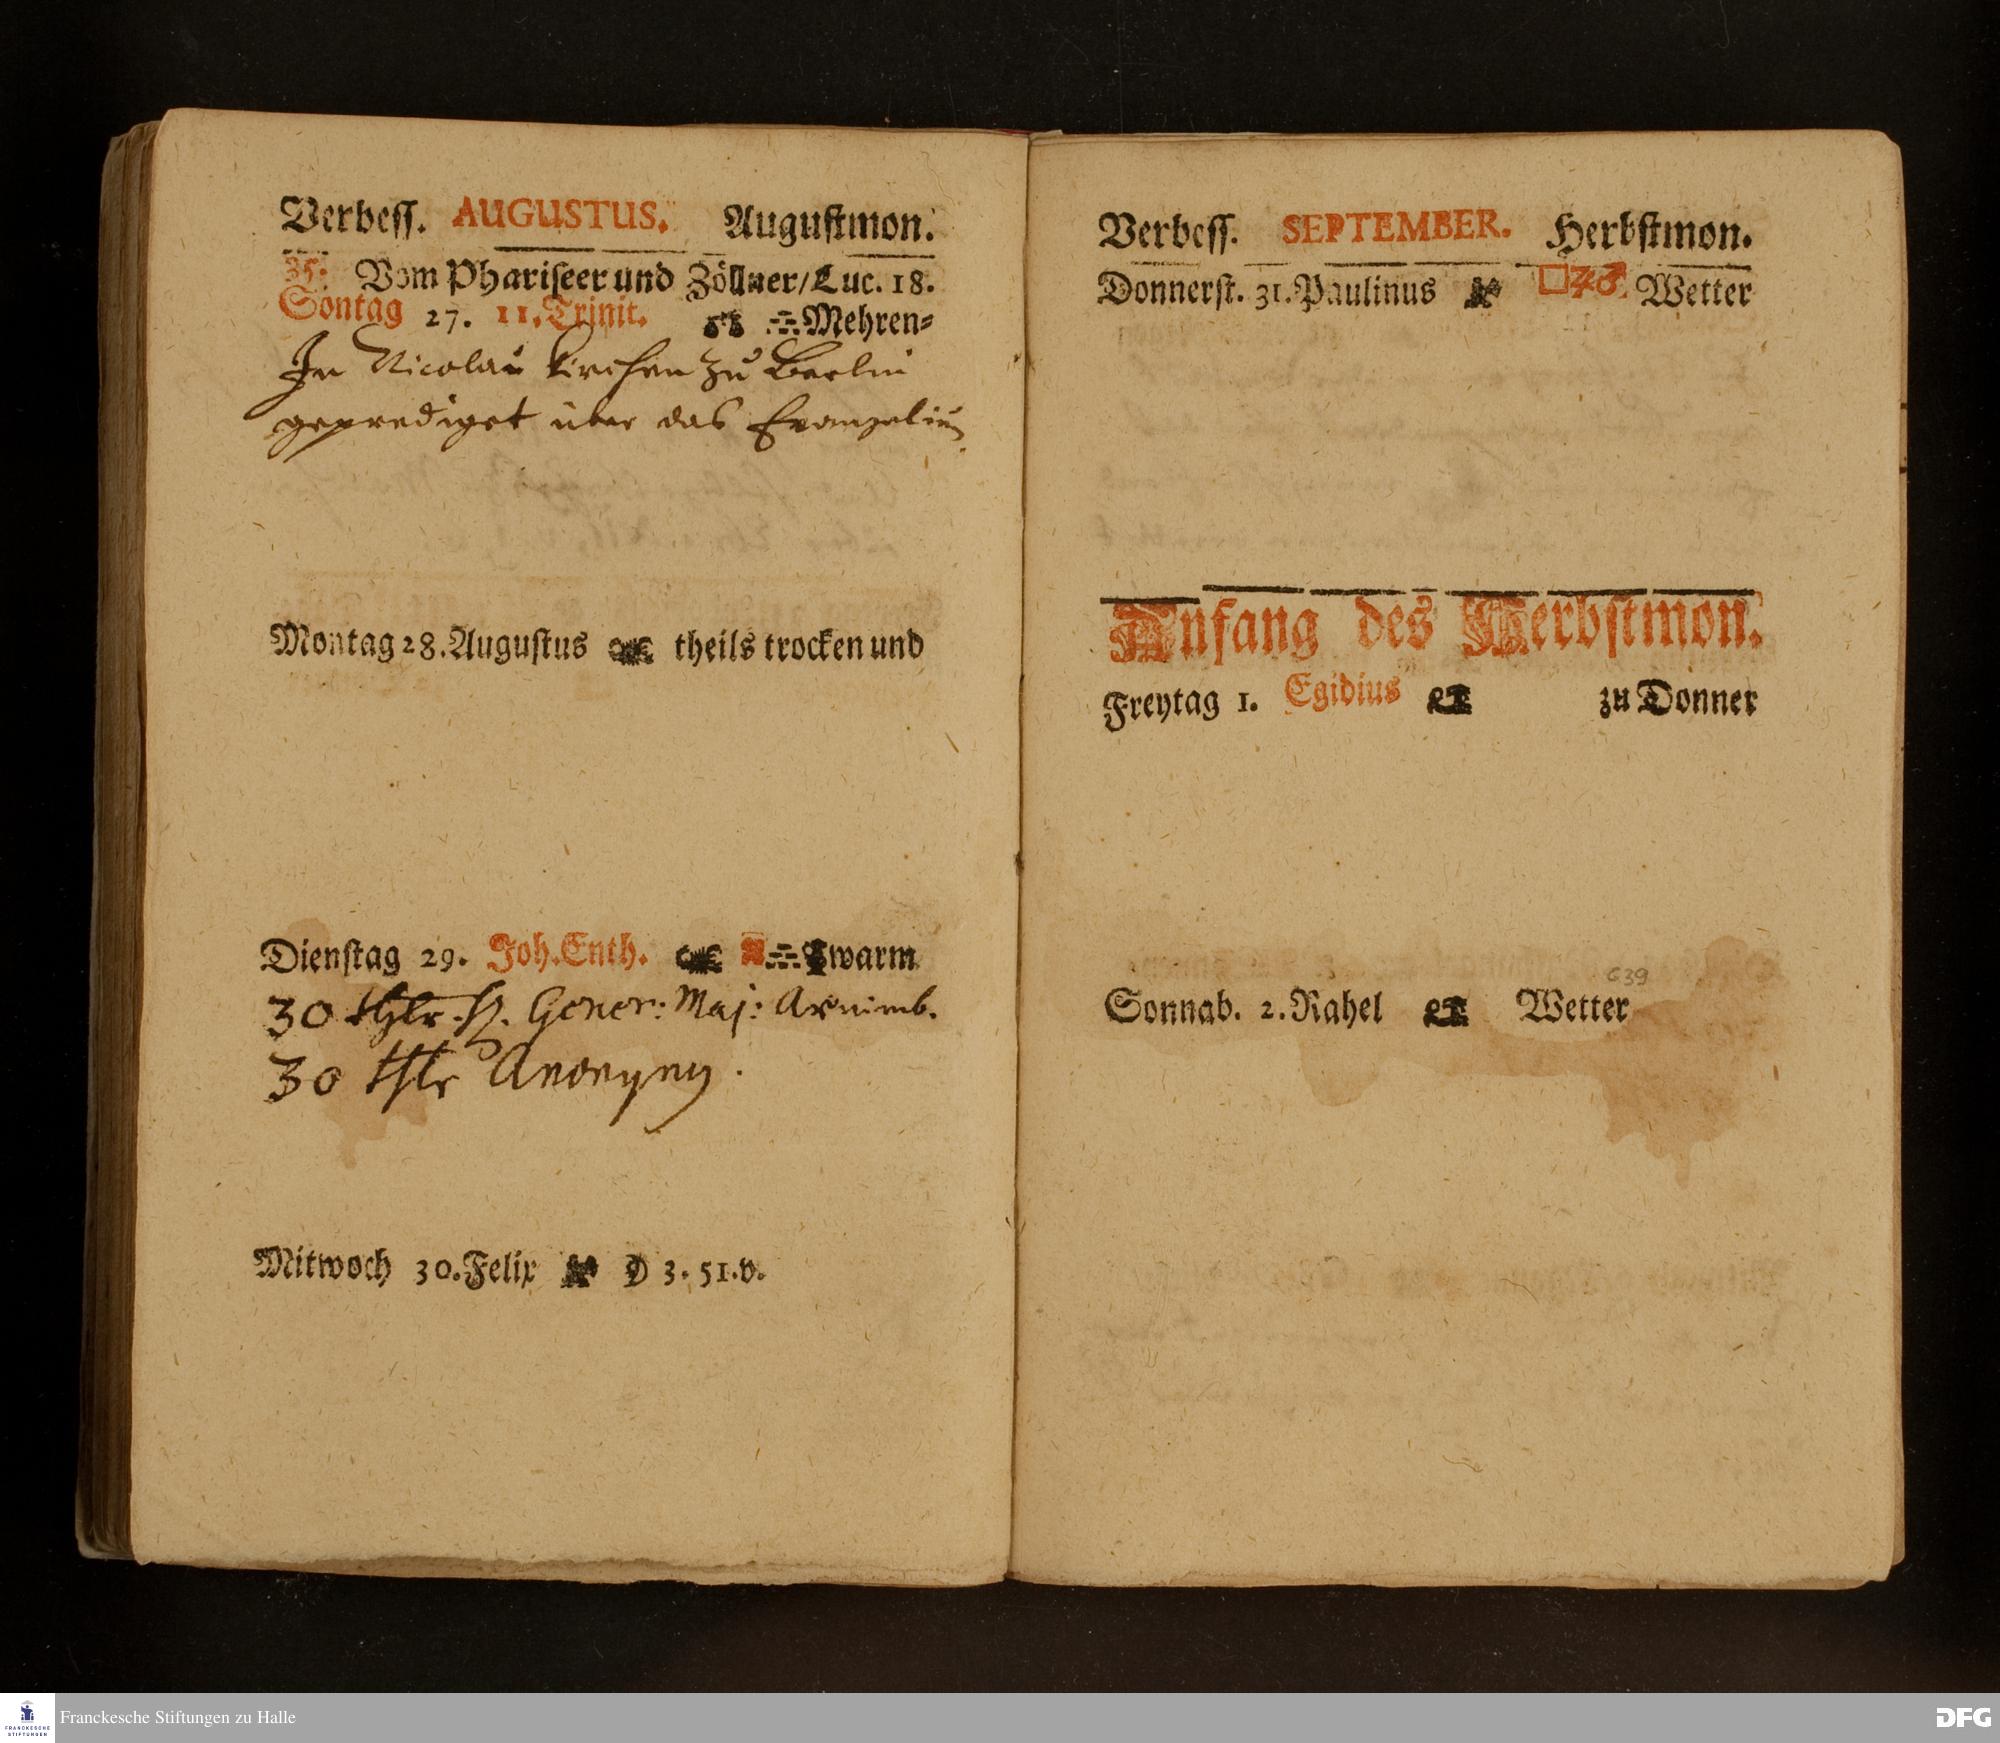 Verbess. AUGUSTUS. Augustmon.
35. Vom Phariseer und Zöllner/Luc. 18.
Sontag 27. 11. Trinit. Mehren-
In Nicolai Kirchen zu Berlin
geprediget über das Evangelium
Montag 28. Augustus theils trocken und
Dienstag 29. Joh. Enth. warm
30 thlr. H. Gener: Maj: Arnimb.
30 thlr Anonymy.
Mitwoch 30. Felix 3. 51. v.
Verbess. SEPTEMBER. Herbstmon.
Donnerst. 31. Paulinus □♃♂ Wetter
Anfang des Herbstmon.
Freytag 1. Egidius zu Donner
639
Sonnab. 2. Rahel Wetter
FRANCKESCHE
STIFTUNGEN
Franckesche Stiftungen zu Halle
DFG